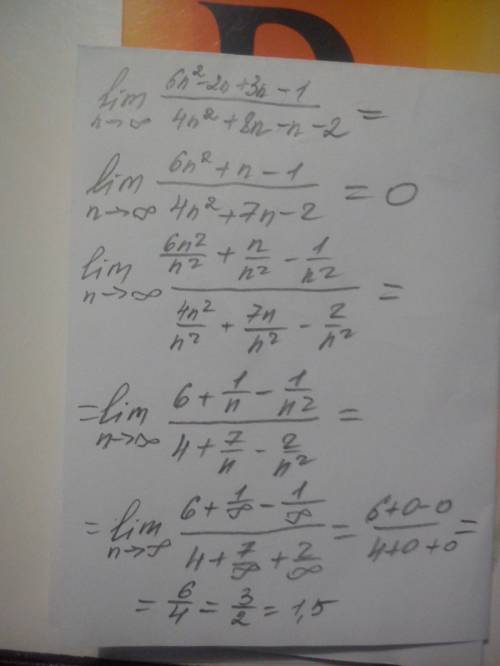 lim n→∞ (6n² - 2n + 3n - 1)/(4n² + 8n - n - 2) =
lim n→∞ (6n² + n - 1)/(4n² + 7n - 2) = 0
lim n→∞ (6n²/n² + n/n² - 1/n²)/(4n²/n² + 7n/n² - 2/n²) =
= lim n→∞ (6 + 1/n - 1/n²)/(4 + 7/n - 2/n²) =
= lim n→∞ (6 + 1/∞ - 1/∞)/(4 + 7/∞ + 2/∞) = (6+0-0)/(4+0+0) =
= 6/4 = 3/2 = 1,5